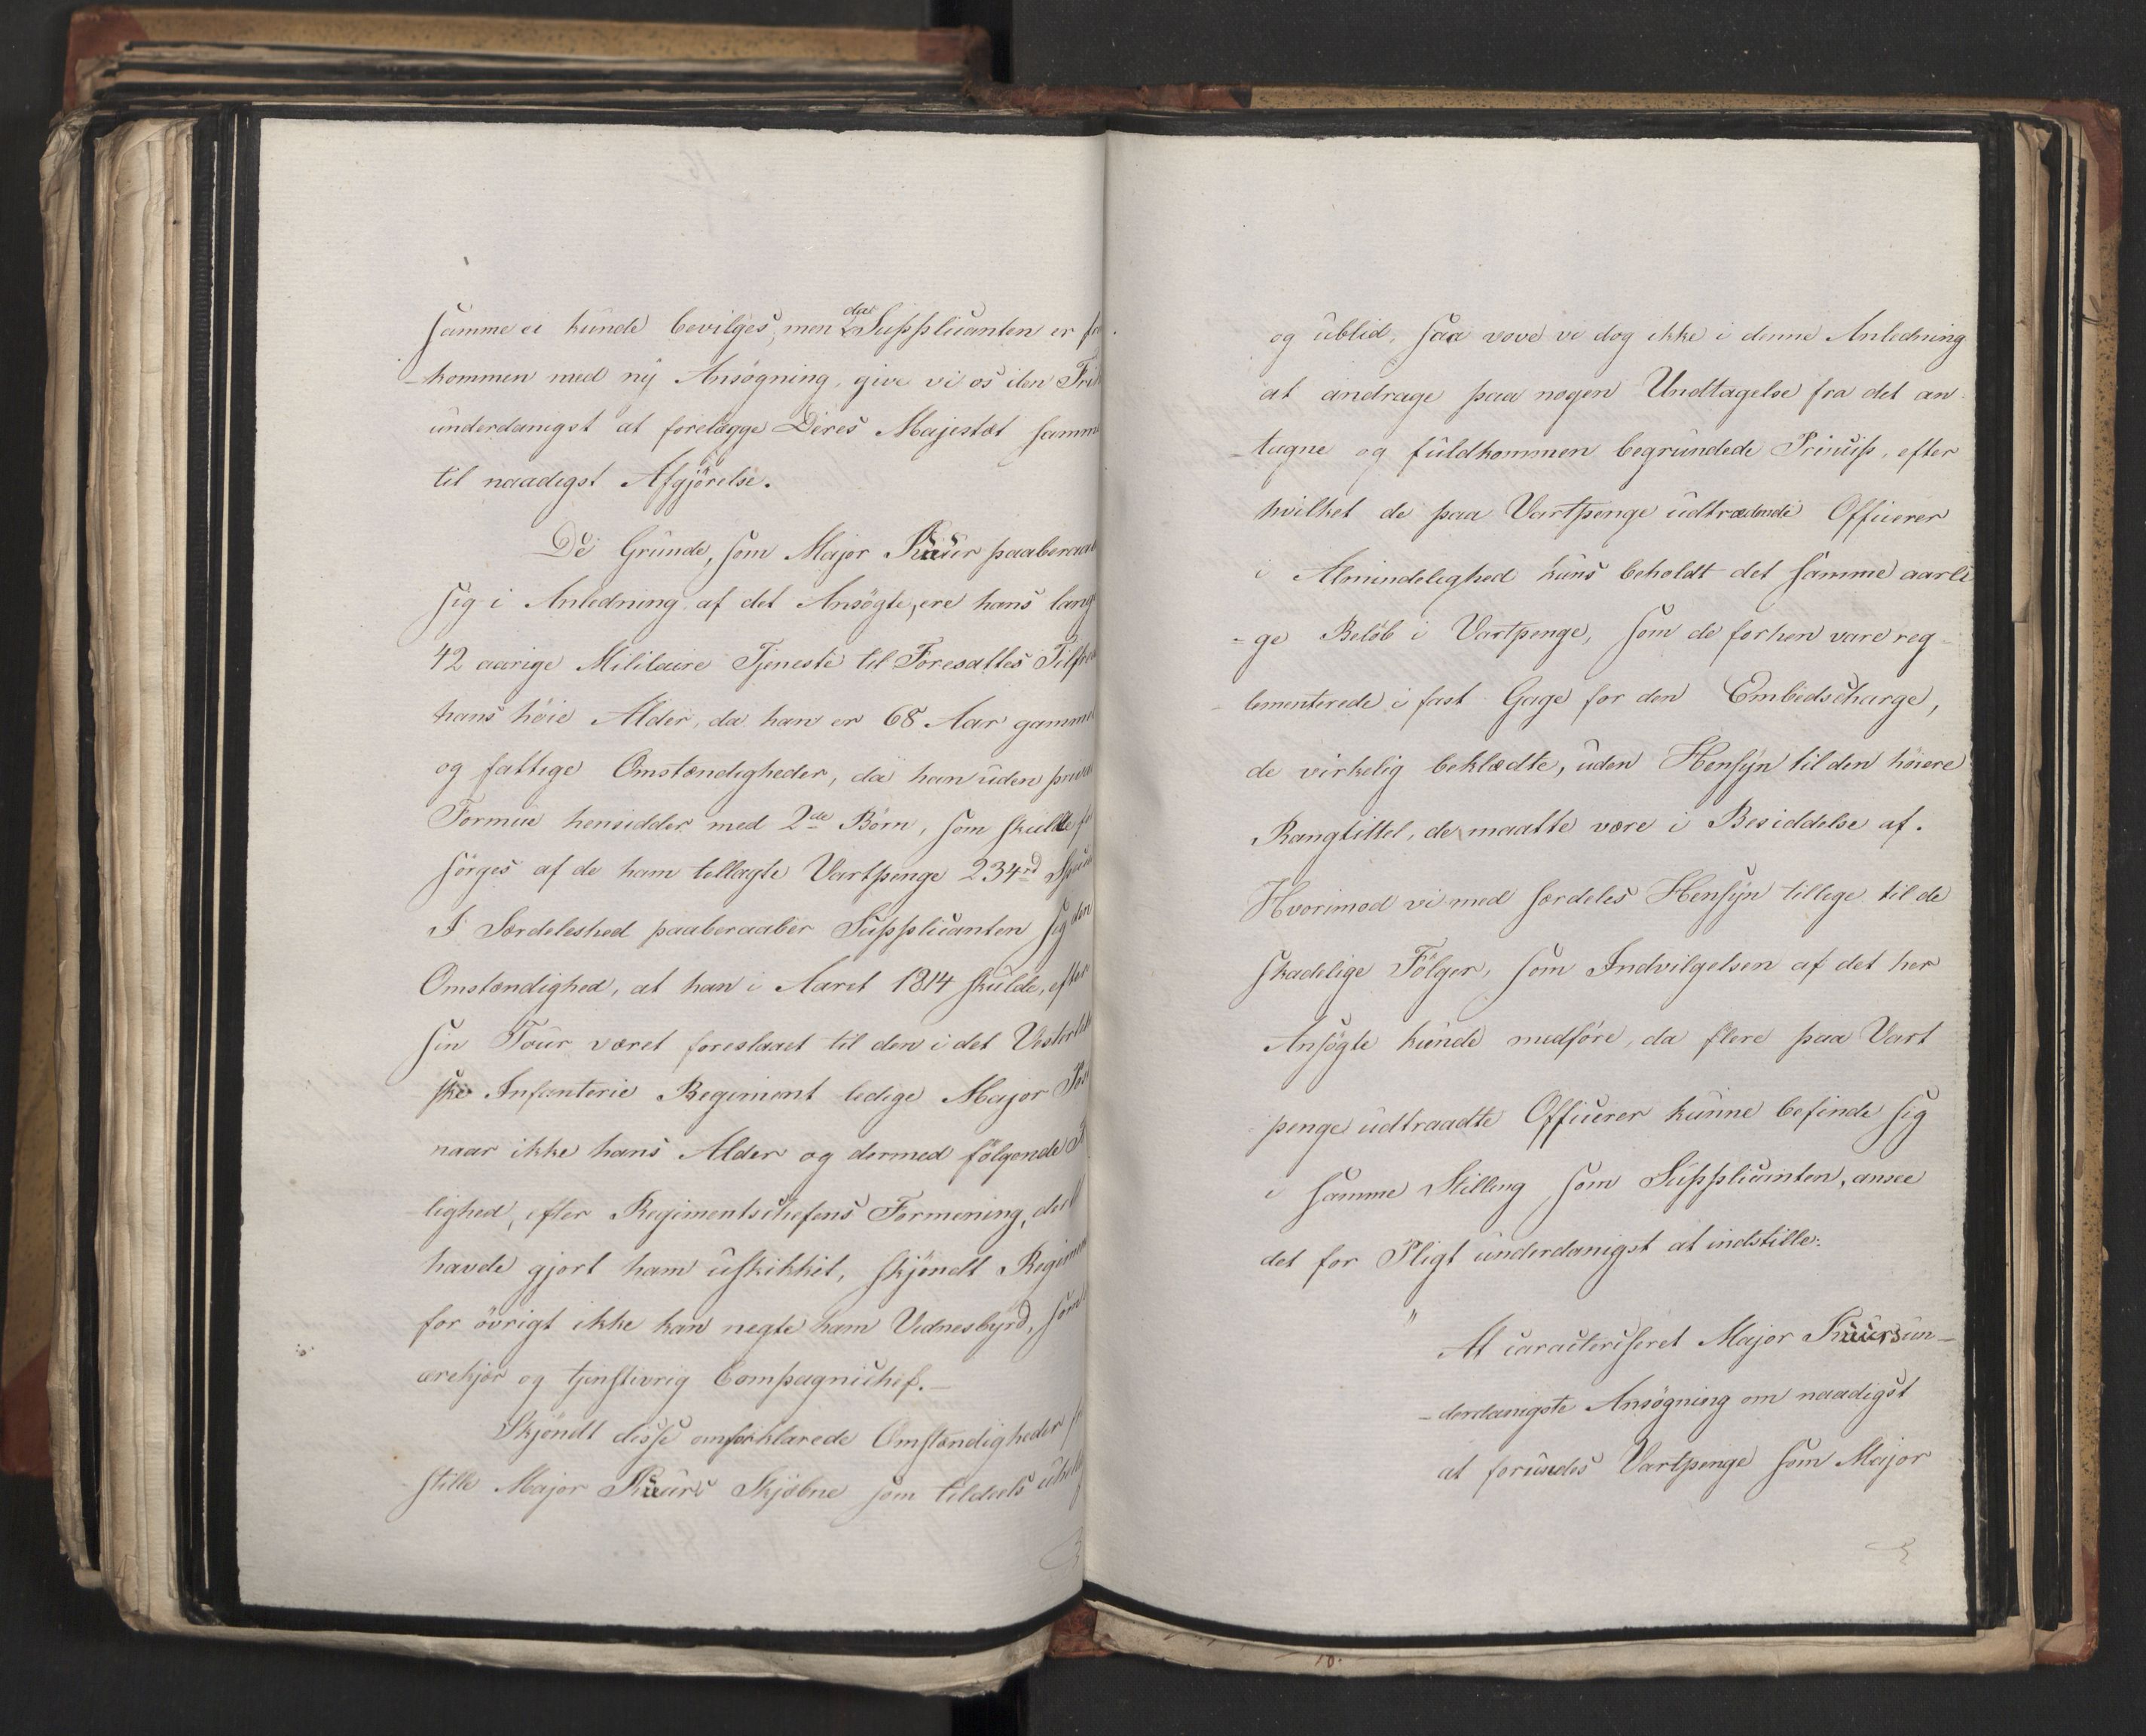 samme ei kunde bevilges, men da Supplicanten er
-kommen med ny Ansøgning, give vi os den
underdanigst at forelægge Deres Majestæt samm
til naadigst Afgjörelse.
De Grunde, som Major Knur paaberaab
sig i Anledning af det Ansögte, ere hans lang
42 aarige Militaire Tjeneste til Foresattes Tilfre
hans höie Alder, da han er 68 Aar gamme
og fattige Omstændigheder, da han uden privat
Formue hensidder med 2de Börn, som skulle
sörges af de ham tillagte Vartpenge 234rd Spec
I Særdeleshed paaberaaber Supplicanten sig den
Omstændighed, at han i Aaret 1814 skulde, efter
sin Tour været foreslaaet til den i det Vesterleh
ske Infanterie Regiment ledige Major Pos
naar ikke hans Alder og dermed fölgende
lighed, efter Regimentschefens Formening, der
havde gjort ham uskikket, skjöndt Regimen
for övrigt ikke kan negte ham Vidnesbyrd, som
ærekjær og tjenstivrig Compagnichef.-
Skjöndt disse omforklarede Omstændigheder
stille Major Knurs Skjæbne som tildeels uheld
og ublid, saa vove vi dog ikke i denne Anledning
at andrage paa nogen Undtagelse fra det an
-tagne og fuldkommen begrundede Princip, efter
hvilket de paa Vartpenge udtrædende Officerer
i Almindelighed kuns beholdt det samme aarli
-ge Belöb i Vartpenge, som de forhen vare reg-
lementerede i fast Gage for den Embedscharge,
de virkelig beklædte, uden Hensyn til den höiere
Rangtittel, de maatte være i Besiddelse af.
Hvorimod vi med særdeles Hensyn tillige til de
skadelige Fölger, som Indvilgelsen af det her
Ansögte kunde medföre, da flere paa Vart
penge udtraadte Officerer kunne befinde sig
i samme Stilling som Supplicanten, ansee
det for Pligt underdanigst at indstille:
" At caracteriseret Major Knurs un-
-derdanigste Ansögning om naadigst
at forundes Vartpenge som Major